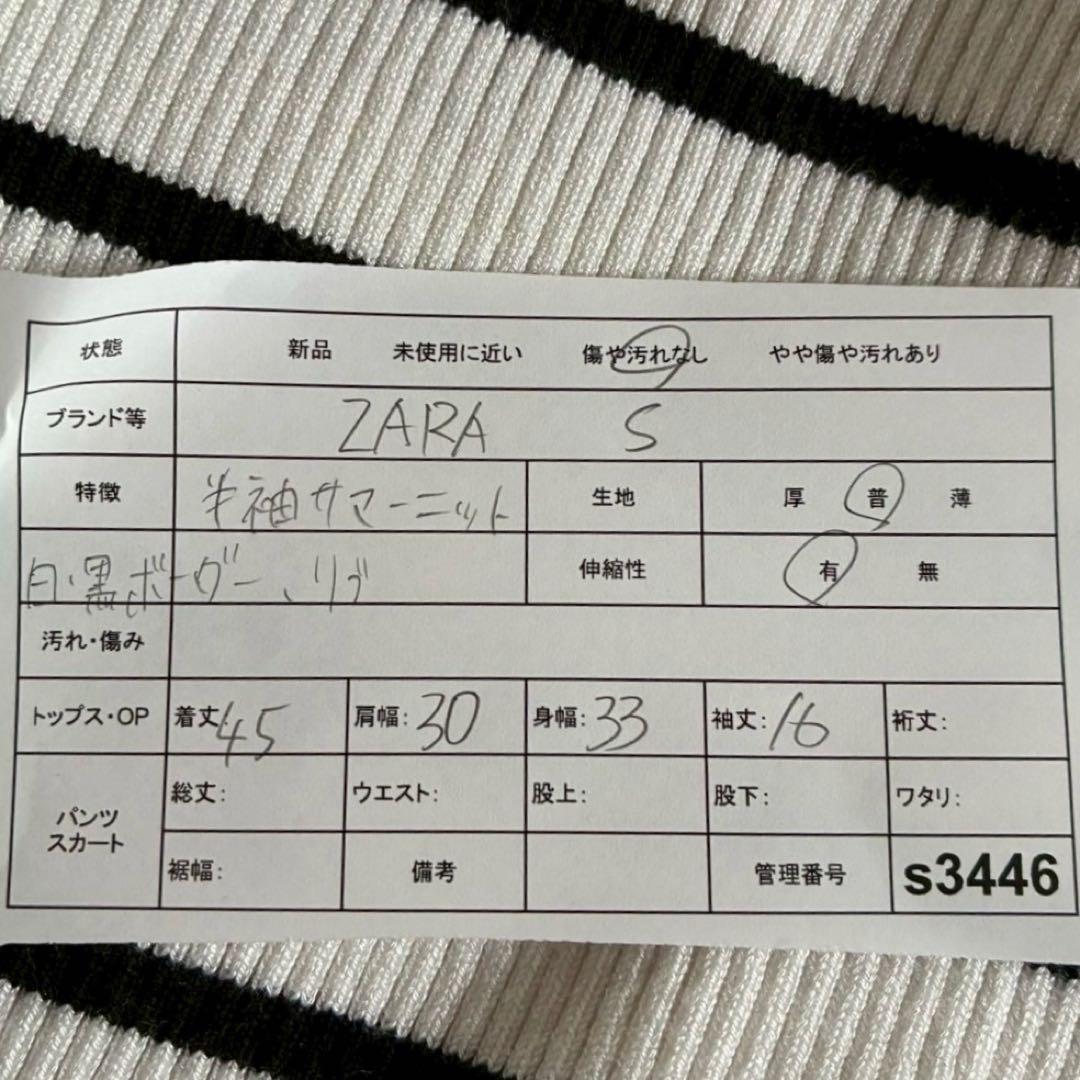 状態 新品 未使用に近い 傷や汚れなし やや傷や汚れあり
ブランド等 ZARA S
特徴 半袖サマーニット 生地 厚 普 薄
白・黒ボーダー、リブ 伸縮性 有 無
汚れ・傷み
トップス・OP 着丈: 45 肩幅: 30 身幅: 33 袖丈: 16 裄丈:
パンツ スカート 総丈: ウエスト: 股上: 股下: ワタリ:
裾幅: 備考 管理番号 s3446